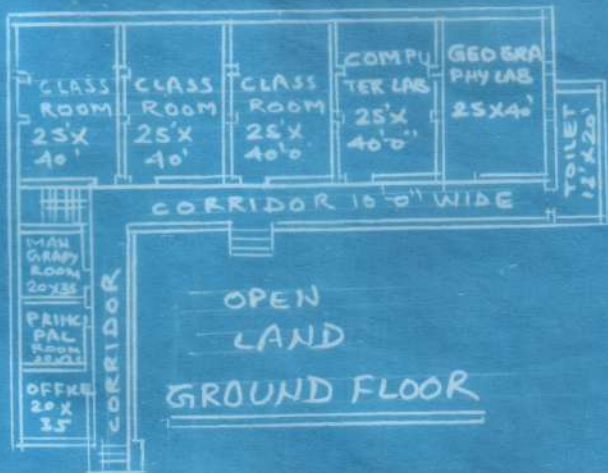 CLASS
ROOM
25'X
40'
CLASS
ROOM
25'X
40'
CLASS
ROOM
25'X
40'0
COMPU
TER LAB
25'X
40'-0"
GEOGRA
PHY LAB
25X40'
TOILET
12'X20'
CORRIDOR 10'0" WIDE
MAN
GRAPY
ROOM
20X35
PRINCI
PAL
ROOM
OFFKE
20 X
35
CORRIDOR
OPEN
LAND
GROUND FLOOR